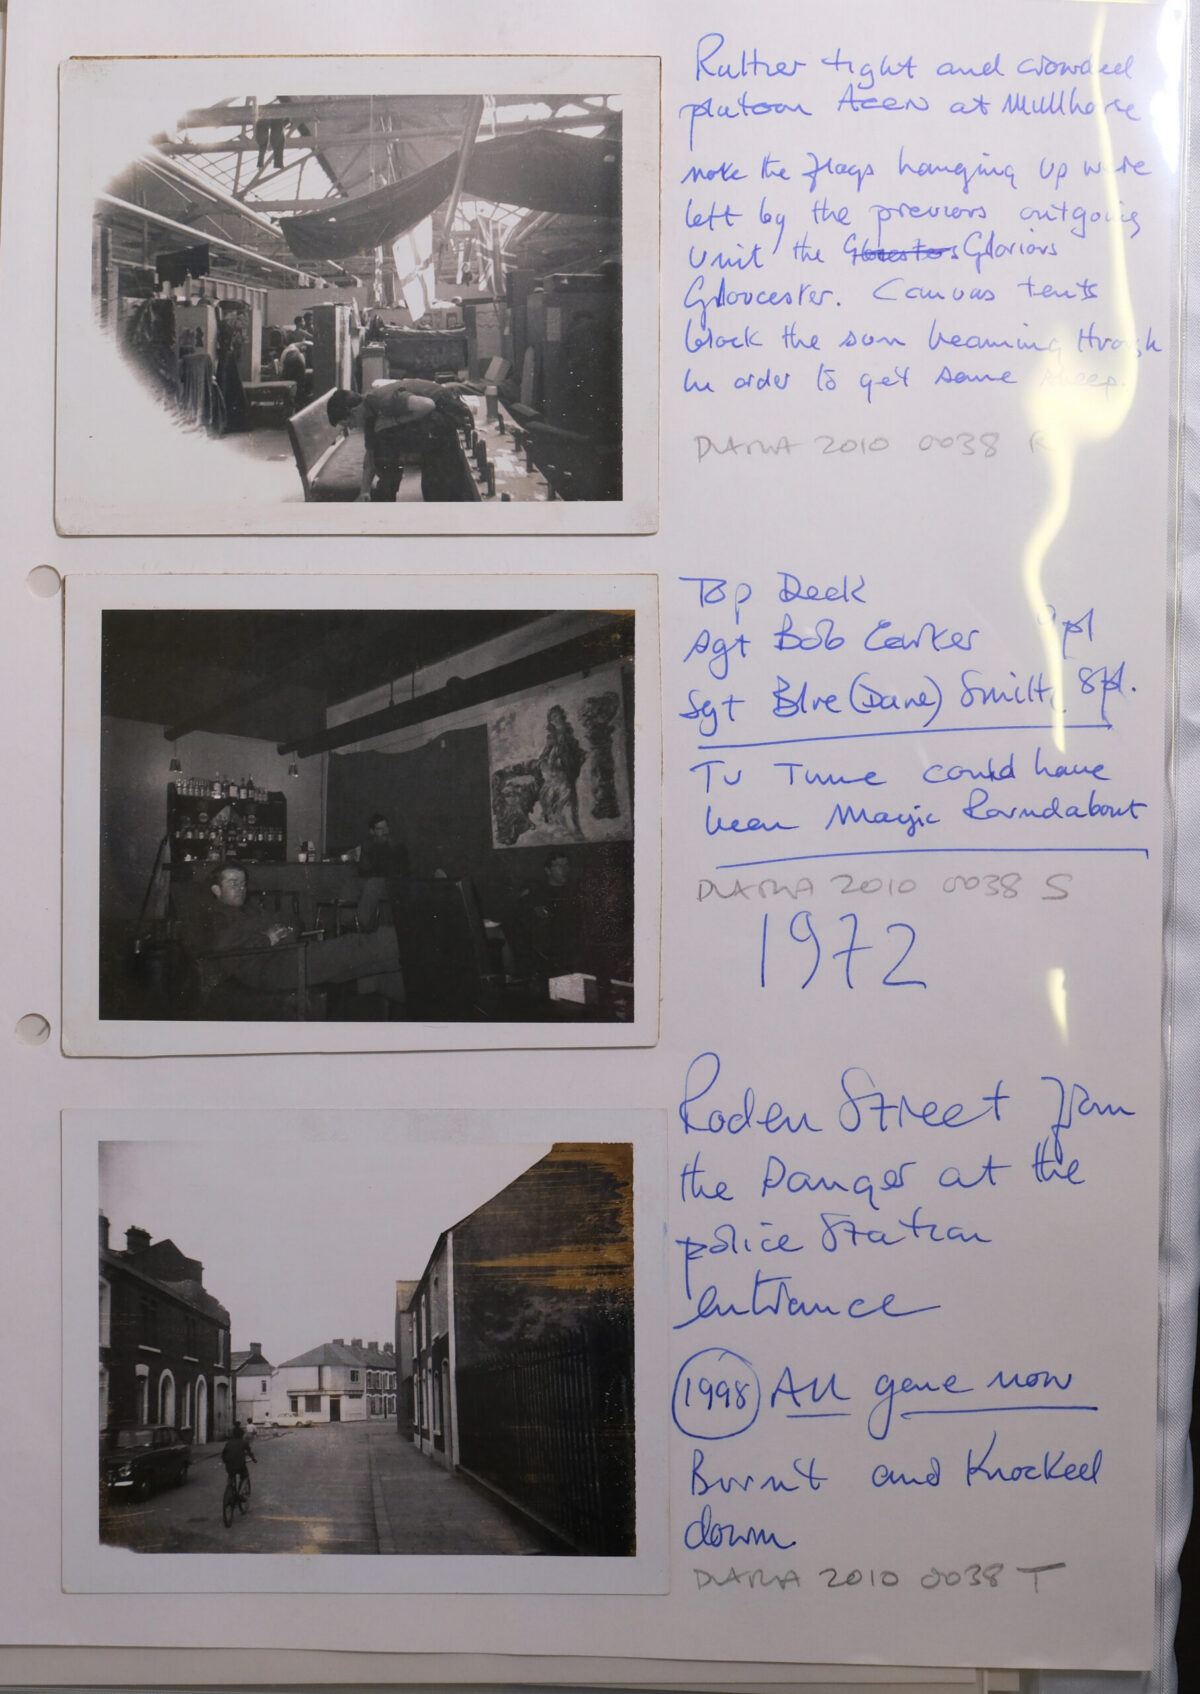 Rather tight and crowded
platoon Accn at Mullhouse
note the flags hanging up were
left by the previous outgoing
Unit the Glorious
Gloucester. Canvas tents
block the sun beaming through
in order to get some sleep.
DLARWA 2010 0038 R
Top Deck
Sgt Bob Carker pl
Sgt Blue (Dave) Smith 8pl.
TV Time could have
been Magic Roundabout
DLARWA 2010 0038 S
1972
Roden Street from
the Sanger at the
police Station
entrance
1998 All gone now
Burnt and Knocked
down
DLARWA 2010 0038 T